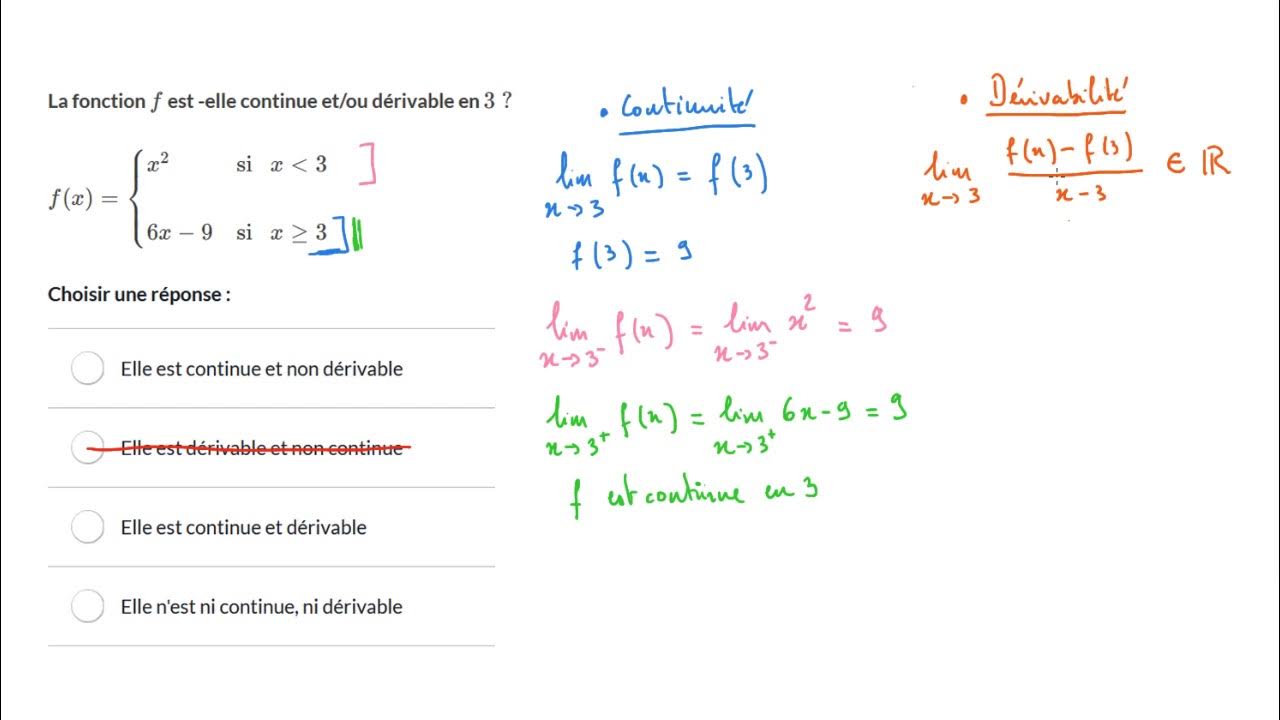 La fonction f est -elle continue et/ou dérivable en 3 ?
f(x) = { x² si x < 3
6x − 9 si x ≥ 3
Choisir une réponse :
Elle est continue et non dérivable
Elle est dérivable et non continue
Elle est continue et dérivable
Elle n'est ni continue, ni dérivable
• Continuité
lim x→3 f(x) = f(3)
f(3) = 9
lim x→3⁻ f(x) = lim x→3⁻ x² = 9
lim x→3⁺ f(x) = lim x→3⁺ 6x-9 = 9
f est continue en 3
• Dérivabilité
lim x→3 (f(x) - f(3)) / (x-3) ∈ ℝ